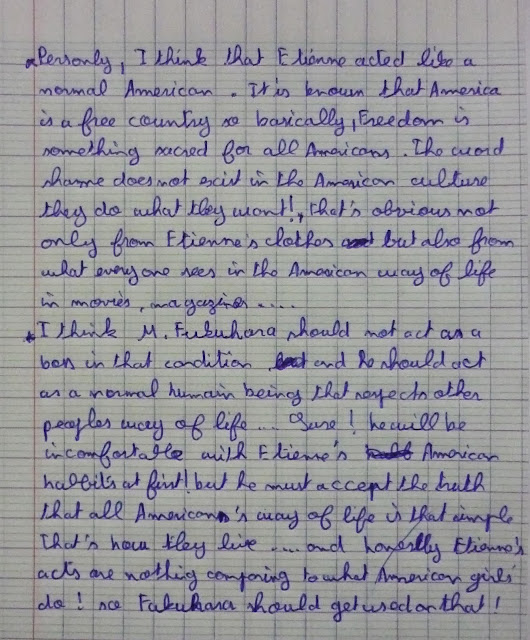 * Personly, I think that Etienne acted like a
normal American. It is known that America
is a free country so basically, Freedom is
something sacred for all Americans. The word
shame does not exist in the American culture
they do what they want!, that's obvious not
only from Etienne's clothes but also from
what everyone sees in the American way of life
in movies, magazines .....
* I think M. Fukuhara should not act as a
boss in that condition and he should act
as a normal humain being that respects other
peoples way of life ... Sure! he will be
incomfortable with Etienne's American
habbits at first! but he must accept the truth
that all American's way of life is that simple
that's how they live ..... and honestly Etienne's
acts are nothig comparing to what American girls
do! so Fakuhara should get used on that!